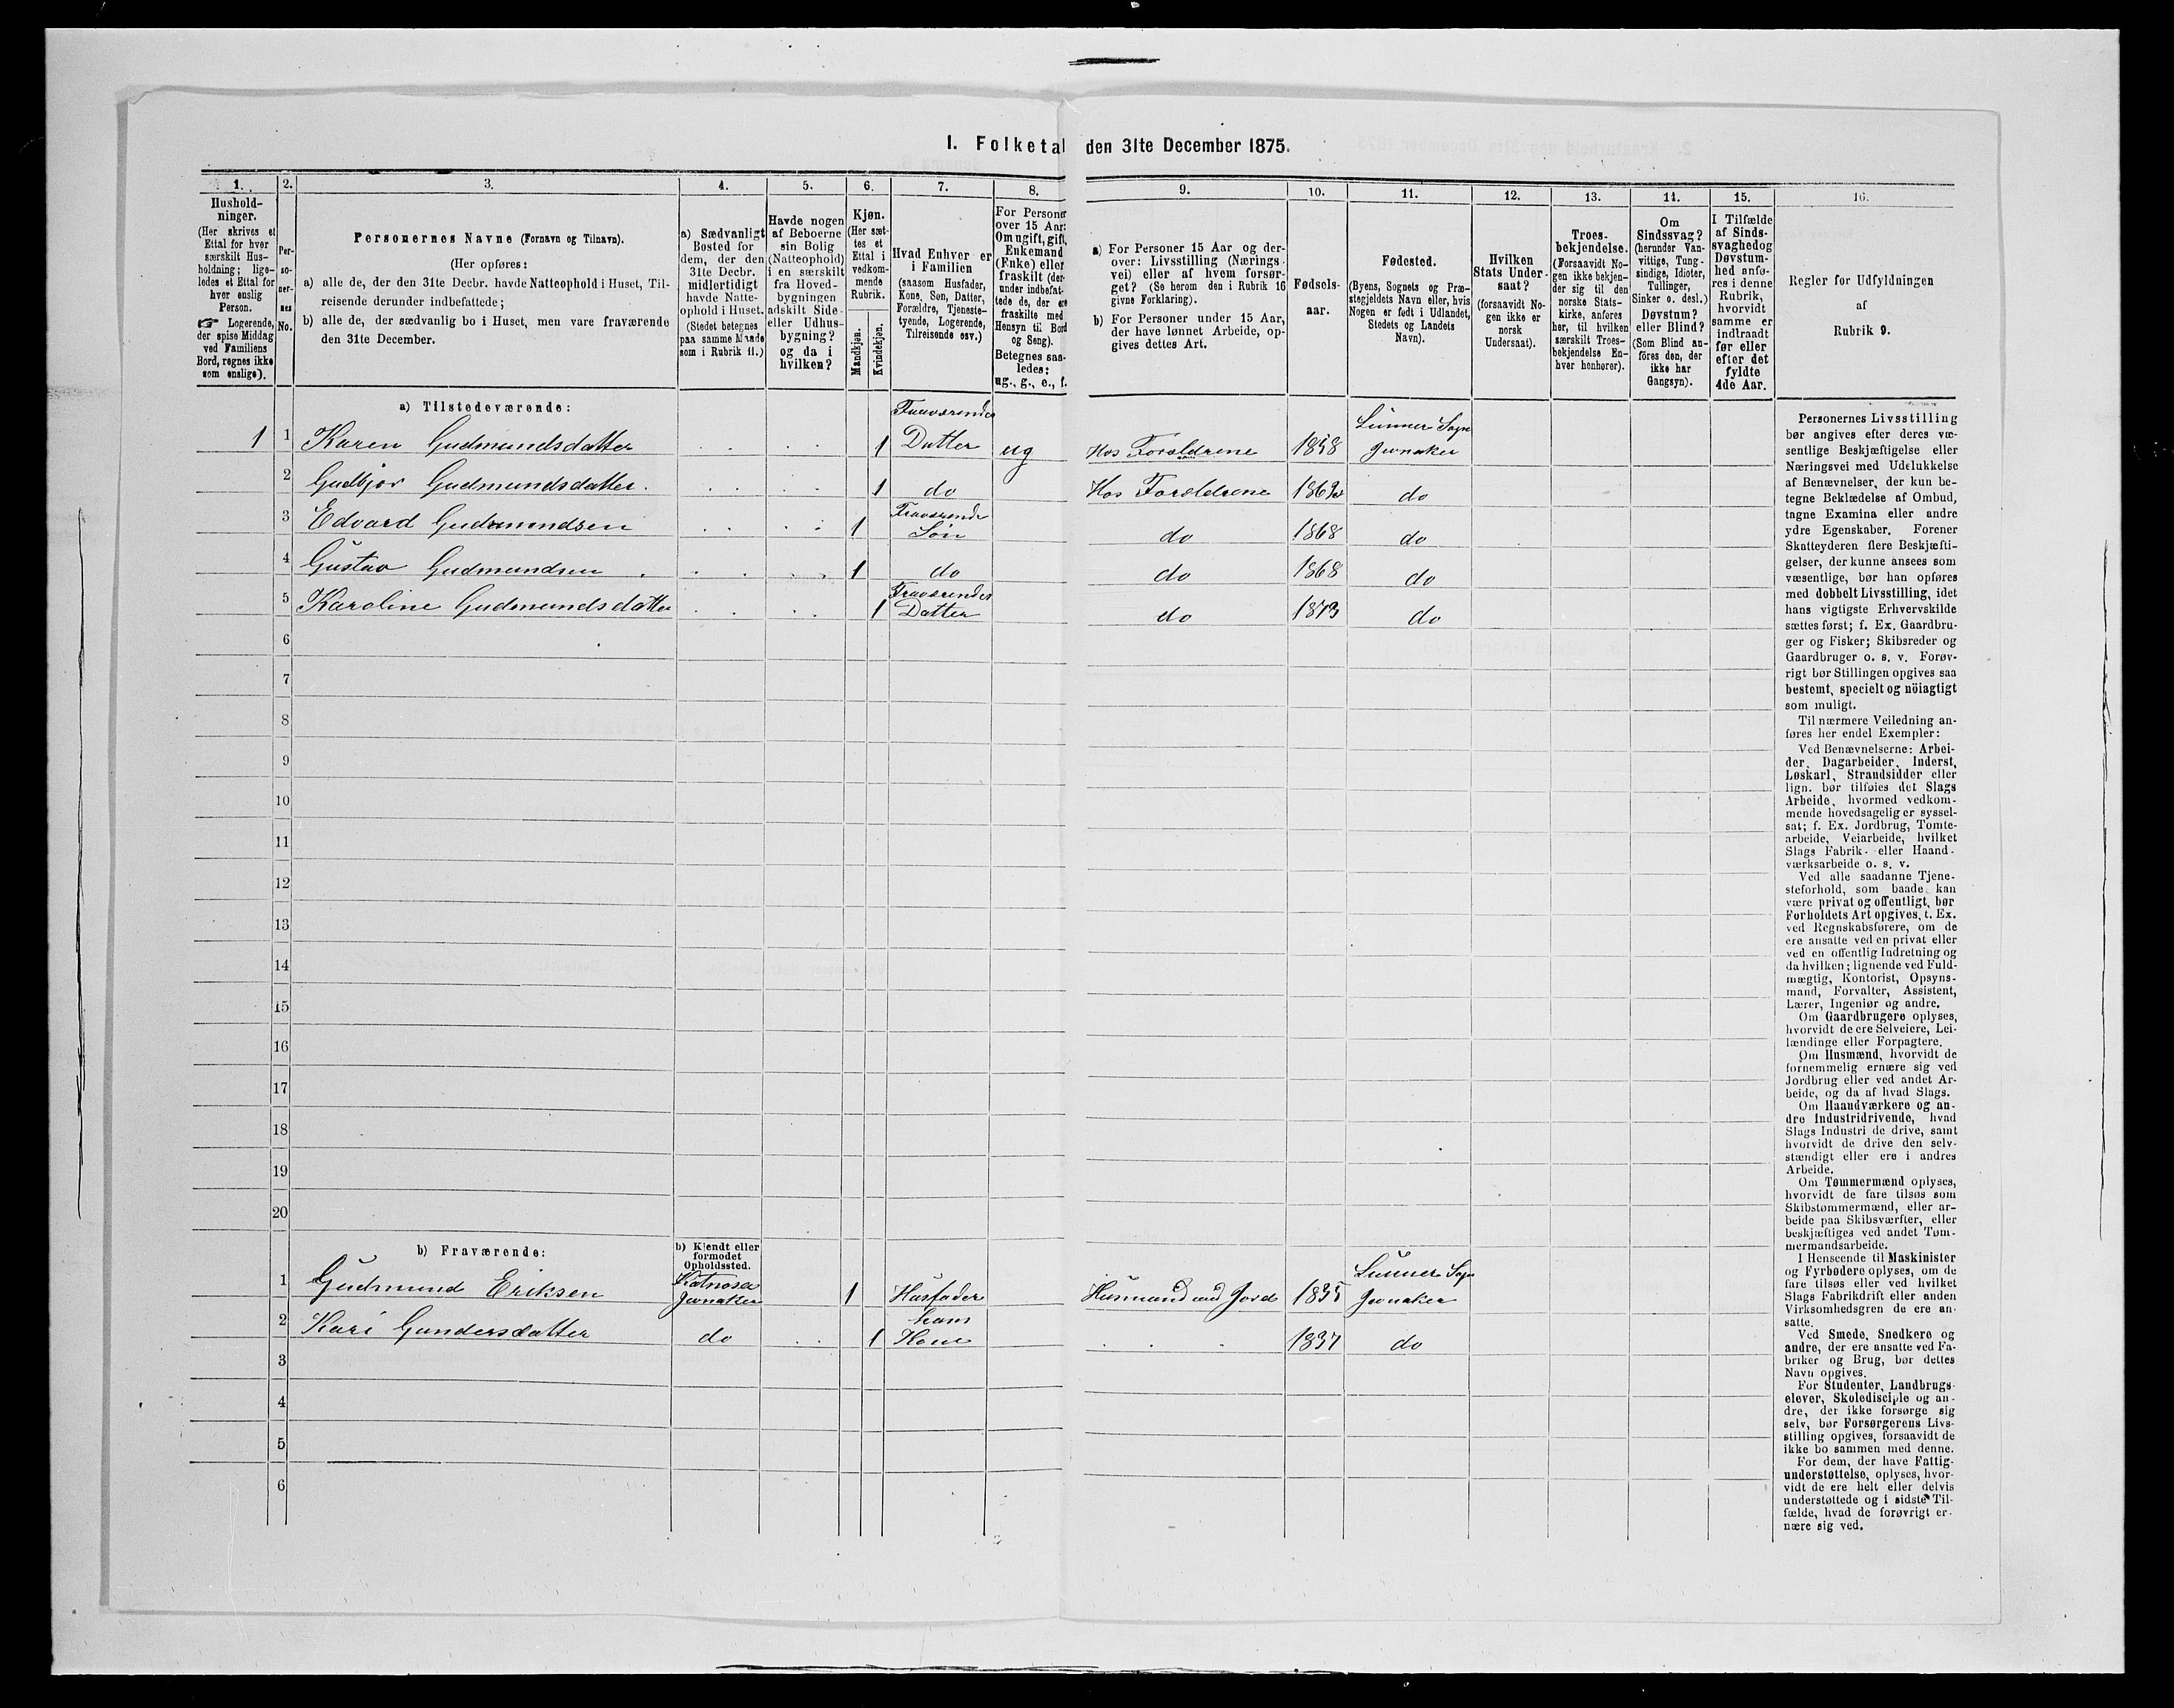 I. Folketal den 31te December 1875.
1.
2.
3.
4.
5.
6.
7.
8.
9.
10.
11.
12.
13.
14.
15.
16.
Hushold-
ninger.
(Her skrives et
Ettal for hver
særskilt Hus-
holdning; lige-
ledes et Ettal for
hver enslig
Person.
☞ Logerende,
der spise Middag
ved Familiens
Bord, regnes ikke
som enslige).
Per-
so-
ner-
nes
No.
Personernes Navne (Fornavn og Tilnavn).
(Her opføres:
a) alle de, der den 31te Decbr. havde Natteophold i Huset, Til-
reisende derunder indbefattede;
b) alle de, der sædvanlig bo i Huset, men vare fraværende
den 31te December.
a) Sædvanligt
Bosted for
dem, der den
31te Decbr.
midlertidigt
havde Natte-
ophold i Huset.
(Stedet betegnes
paa samme Maade
som i Rubrik 11.)
Havde nogen
af Beboerne
sin Bolig
(Natteophold)
i en særskilt
fra Hoved-
bygningen
adskilt Side-
eller Udhus-
bygning?
og da i
hvilken?
Kjøn.
(Her sæt-
tes et
Ettal i
vedkom-
mende
Rubrik.
Mandkjøn.
Kvindekjøn.
Hvad Enhver er
i Familien
(saasom Husfader,
Kone, Søn, Datter,
Forældre, Tjeneste-
tyende, Logerende,
Tilreisende osv.)
For Personer
over 15 Aar:
Om ugift, gift,
Enkemand
(Enke) eller
fraskilt (der-
under indbefat-
tede de, der ere
fraskilte med
Hensyn til Bord
og Seng).
Betegnes saa-
ledes:
ug., g., e., f.
a) For Personer 15 Aar og der-
over: Livsstilling (Nærings-
vei) eller af hvem forsør-
get? (Se herom den i Rubrik 16
givne Forklaring).
b) For Personer under 15 Aar,
der have lønnet Arbeide, op-
gives dettes Art.
Fødsels-
aar.
Fødested.
(Byens, Sognets og Præ-
stegjeldets Navn eller, hvis
Nogen er født i Udlandet,
Stedets og Landets
Navn).
Hvilken
Stats Under-
saat?
(forsaavidt No-
gen ikke er
norsk
Undersaat).
Troes-
bekjendelse.
(Forsaavidt No-
gen ikke bekjen-
der sig til den
norske Stats-
kirke, anføres
her, til hvilken
særskilt Troes-
bekjendelse En-
hver henhører).
Om
Sindssvag?
(herunder Van-
vittige, Tung-
sindige, Idioter,
Tullinger,
Sinker o. desl.)
Døvstum?
eller Blind?
(Som Blind an-
føres den, der
ikke har
Gangsyn).
I Tilfælde
af Sinds-
svaghed og
Døvstum-
hed anfø-
res i denne
Rubrik,
hvorvidt
samme er
indtraadt
før eller
efter det
fyldte
4de Aar.
Regler for Udfyldningen
af
Rubrik 9.
a) Tilstedeværende:
1 1 Karen Gudmundsdatter 1 Fraværendes Datter ug Hos Forældrene 1858 Lunner Sogn Jevnaker
2 Gudbjør Gudmundsdatter. 1 do Hos Forældrene 1863 do
3 Edvard Gudmundsen 1 Fraværende Søn do 1868 do
4 Gustav Gudmundsen 1 do do 1868 do
5 Karoline Gudmundsdatter 1 Fraværendes Datter do 1873 do
6
7
8
9
10
11
12
13
14
15
16
17
18
19
20
b) Fraværende:
b) Kjendt eller
formodet
Opholdssted.
1 Gudmund Eriksen Katnosa Jevnaker 1 Husfader Husmand med Jord 1835 Lunner Sogn Jevnaker
2 Kari Gundersdatter do 1 hans Kone 1837 do
3
4
5
6
Personernes Livsstilling
bør angives efter deres væ-
sentlige Beskjæftigelse eller
Næringsvei med Udelukkelse
af Benævnelser, der kun be-
tegne Beklædelse af Ombud,
tagne Examina eller andre
ydre Egenskaber. Forener
Skatteyderen flere Beskjæfti-
gelser, der kunne ansees som
væsentlige, bør han opføres
med dobbelt Livsstilling, idet
hans vigtigste Erhvervskilde
sættes først; f. Ex. Gaardbru-
ger og Fisker; Skibsreder og
Gaardbruger o. s. v. Forøv-
rigt bør Stillingen opgives saa
bestemt, specielt og nöiagtigt
som muligt.
Til nærmere Veiledning an-
føres her endel Exempler:
Ved Benævnelserne: Arbei-
der, Dagarbeider, Inderst,
Løskarl, Strandsidder eller
lign. bør tilføies det Slags
Arbeide, hvormed vedkom-
mende hovedsagelig er syssel-
sat; f. Ex. Jordbrug, Tomte-
arbeide, Veiarbeide, hvilket
Slags Fabrik- eller Haand-
værksarbeide o. s. v.
Ved alle saadanne Tjene-
steforhold, som baade kan
være privat og offentligt, bør
Forholdets Art opgives, t. Ex.
ved Regnskabsførere, om de
ere ansatte ved en privat eller
ved en offentlig Indretning og
da hvilken; lignende ved Fuld-
mægtig, Kontorist, Opsyns-
mand, Forvalter, Assistent,
Lærer, Ingeniør og andre.
Om Gaardbrugere oplyses,
hvorvidt de ere Selveiere, Lei-
lændinge eller Forpagtere.
Om Husmænd, hvorvidt de
fornemmelig ernære sig ved
Jordbrug eller ved andet Ar-
beide, og da af hvad Slags.
Om Haandværkere og an-
dre Industridrivende, hvad
Slags Industri de drive, samt
hvorvidt de drive den selv-
stændigt eller ere i andres
Arbeide.
Om Tømmermænd oplyses,
hvorvidt de fare tilsøs som
Skibstømmermænd, eller ar-
beide paa Skibsværfter, eller
beskjæftiges ved andet Tøm-
mermandsarbeide.
I Henseende til Maskinister
og Fyrbødere oplyses, om de
fare tilsøs eller ved hvilket
Slags Fabrikdrift eller anden
Virksomhedsgren de ere an-
satte.
Ved Smede, Snedkere og
andre, der ere ansatte ved Fa-
briker og Brug, bør dettes
Navn opgives.
For Studenter, Landbrugs-
elever, Skoledisciple og an-
dre, der ikke forsørge sig
selv, bør Forsørgerens Livs-
stilling opgives, forsaavidt de
ikke bo sammen med denne.
For dem, der have Fattig-
understøttelse, oplyses, hvor-
vidt de ere helt eller delvis
understøttede og i sidste Til-
fælde, hvad de forøvrigt er-
nære sig ved.